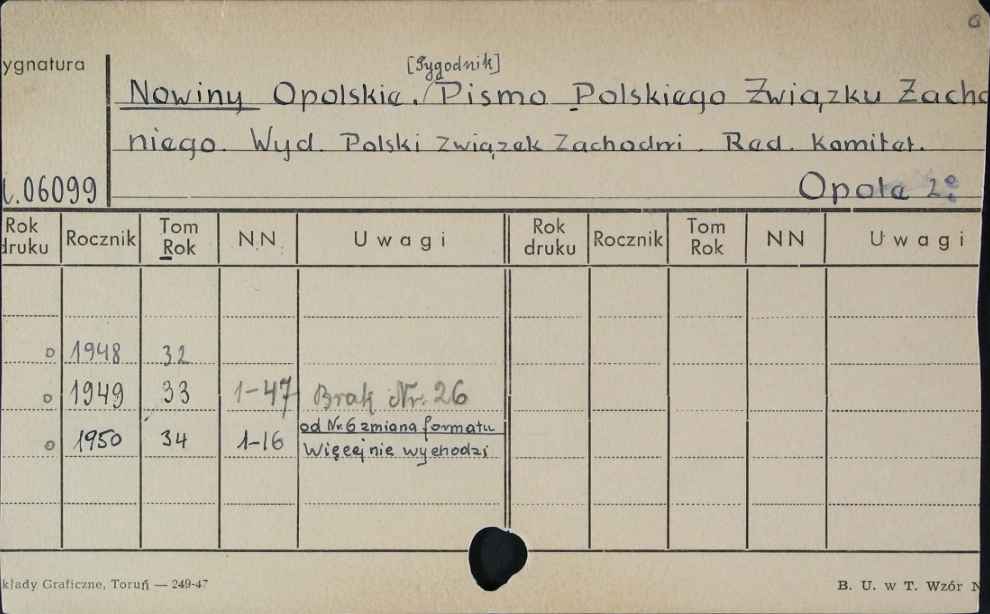 [Tygodnik]
ygnatura Nowiny Opolskie. Pismo Polskiego Związku Zacho
niego. Wyd. Polski Związek Zachodni. Red. Komitet.
.06099 Opole 2°
Rok druku Rocznik Tom Rok NN Uwagi Rok druku Rocznik Tom Rok NN Uwagi
1948 32
1949 33 1-47 Brak Nr. 26
od Nr 6 zmiana formatu
1950 34 1-16 Więcej nie wychodzi
kłady Graficzne, Toruń — 249-47 B. U. w T. Wzór N